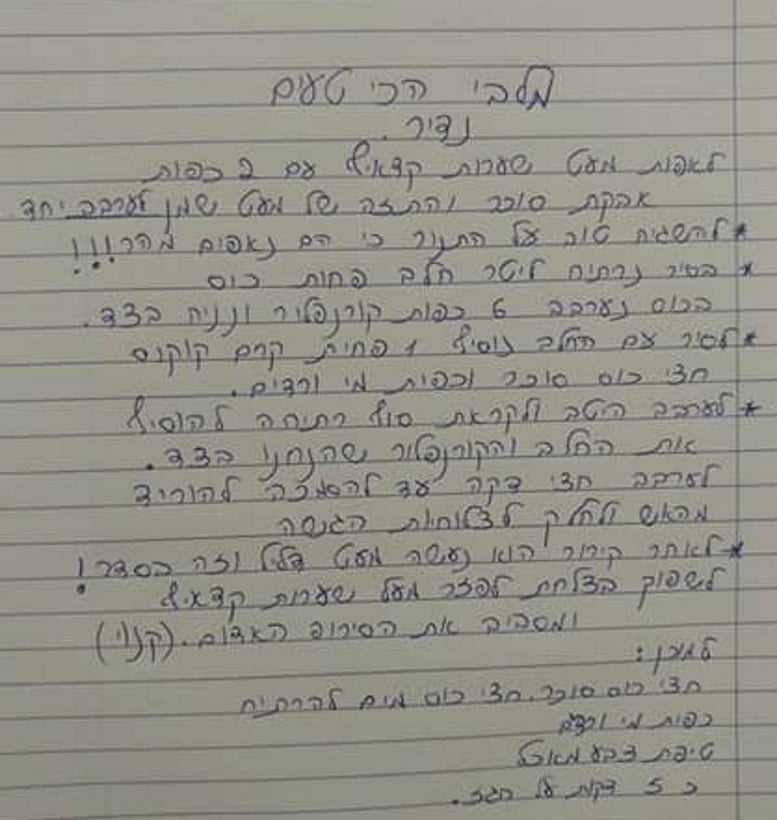 מלבי הכי טעים
נדיר.
לאפות מעט שערות קדאיף עם 2 כפות
אבקת סוכר והתזה של מעט שמן לערבב יחד.
* להשגיח טוב על התנור כי הם נאפים מהר!!!
* בסיר נרתיח ליטר חלב פחות כוס
בכוס נערבב 6 כפות קורנפלור ונניח בצד.
* לסיר עם החלב נוסיף 1 פחית קרם קוקוס
חצי כוס סוכר וכפית מי ורדים.
* לערבב היטב ולקראת סוף רתיחה להוסיף
את החלב והקורנפלור שהנחנו בצד.
לערבב חצי דקה עד להסמכה להוריד
מהאש ולחלק לצלוחיות הגשה
* לאחר קירור הוא נעשה מעט דליל וזה בסדר!
לשפוך בצלחת לפזר מעל שערות קדאיף
ומסביב את הסירופ האדום. (קנוי)
למכין:
חצי כוס סוכר. חצי כוס מים להרתיח
כפית מי ורדים
טיפת צבע מאכל
כ 5 דקות על הגז.